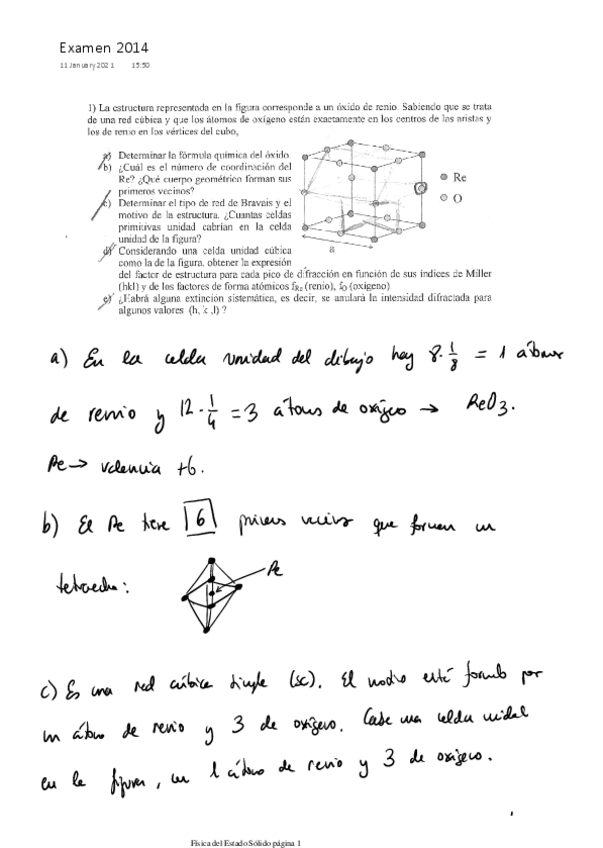 Examen 2014
11 January 2021 15:50
1) La estructura representada en la figura corresponde a un óxido de renio. Sabiendo que se trata
de una red cúbica y que los átomos de oxígeno están exactamente en los centros de las aristas y
los de renio en los vértices del cubo,
a) Determinar la fórmula química del óxido.
b) ¿Cuál es el número de coordinación del
Re? ¿Qué cuerpo geométrico forman sus
primeros vecinos?
c) Determinar el tipo de red de Bravais y el
motivo de la estructura. ¿Cuantas celdas
primitivas unidad cabrían en la celda
unidad de la figura?
d) Considerando una celda unidad cúbica
como la de la figura, obtener la expresión
del factor de estructura para cada pico de difracción en función de sus índices de Miller
(hkl) y de los factores de forma atómicos fRe (renio), fO (oxígeno)
e) ¿Habrá alguna extinción sistemática, es decir, se anulará la intensidad difractada para
algunos valores (h, k ,l) ?
Re
O
a
a) En la celda unidad del dibujo hay 8·1/8 = 1 átomo
de renio y 12·1/4 = 3 átomos de oxígeno → ReO3.
Re → valencia +6.
b) El Re tiene 6 primeros vecinos que forman un
tetraedro:
Re
c) Es una red cúbica simple (sc). El motivo está formado por
un átomo de renio y 3 de oxígeno. Cabe una celda unidad
en la figura, un 1 átomo de renio y 3 de oxígeno.
Física del Estado Sólido página 1